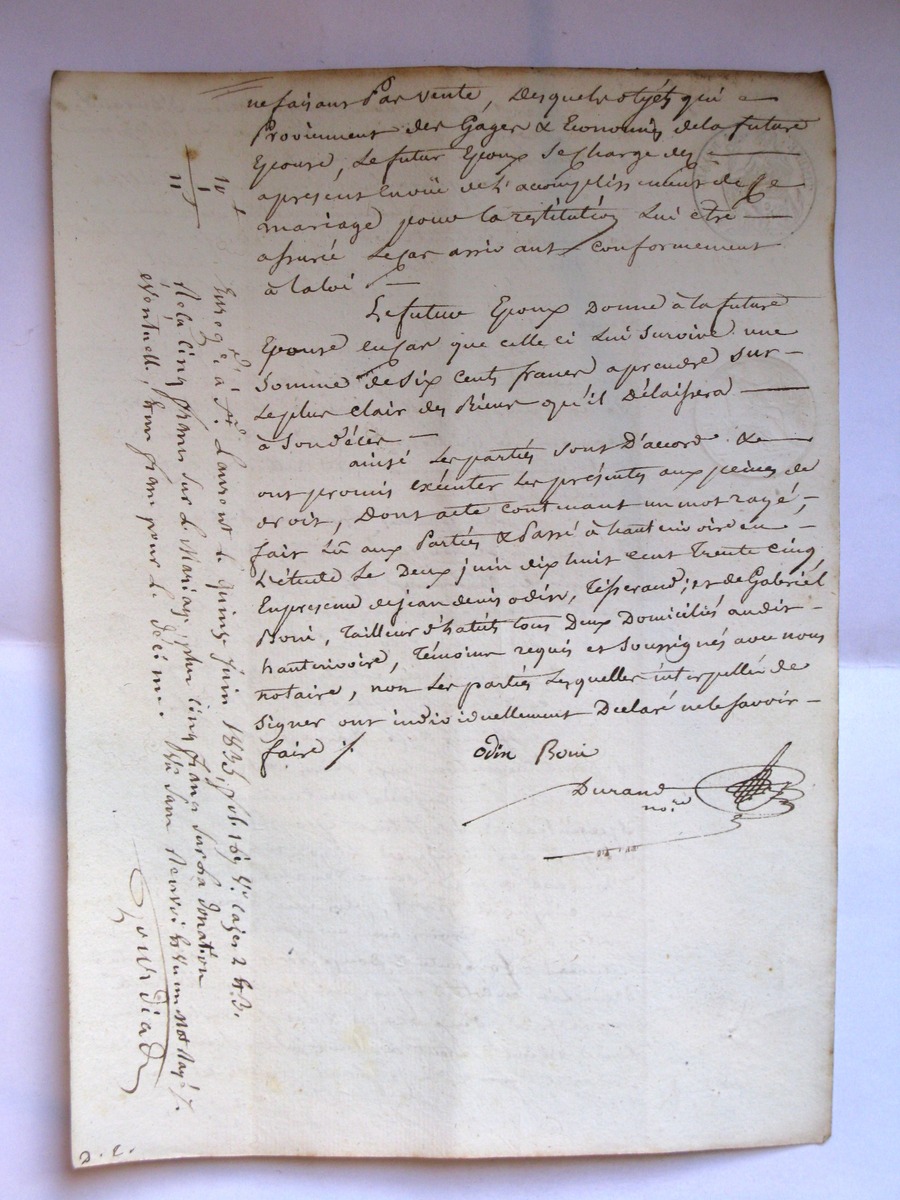 ne faisant Par vente, Desquels objets qui
Proviennent des Gages & Economies de la future
Epouse, Le futur Epoux se Charge dès
apresent en vüe de L'accomplissement de ce
mariage pour La restitution Lui etre
assurée Le cas arrivant conformement
à la loi
Le futur Epoux Donne à la future
Epouse en cas que celle ci Lui survive une
Somme de six cents francs aprendre sur
Le plus clair des Biens qu'il Délaissera
à son décès
ainsi Les parties sont D'accord &
ont promis exécuter Les présentes aux peines de
droit, Dont acte contenant un mot rayé,
fait Lû aux Parties & Passé à hauterivoire en
L'étude Le Deux juin dix huit cent Trente cinq
En presence de jean denis odin, Tisserand, et de Gabriel
Boni, Tailleur d'habits tous Deux Domiciliés audit
hauterivoire, Témoins requis et soussignés avec nous
notaire, non Les parties Lesquelles interpellées de
signer ont individuellement Declaré ne le savoir
faire ./.
odin Boni
Durand
no.re
10
1
11
Enreg.é à St. Laurent le quinze juin 1835, fol. 161 v.o cases 2 & 3.
Reçu cinq francs sur le Mariage, plus cinq francs sur la donation
éventuelle, & un franc pour le décime.
D. C.